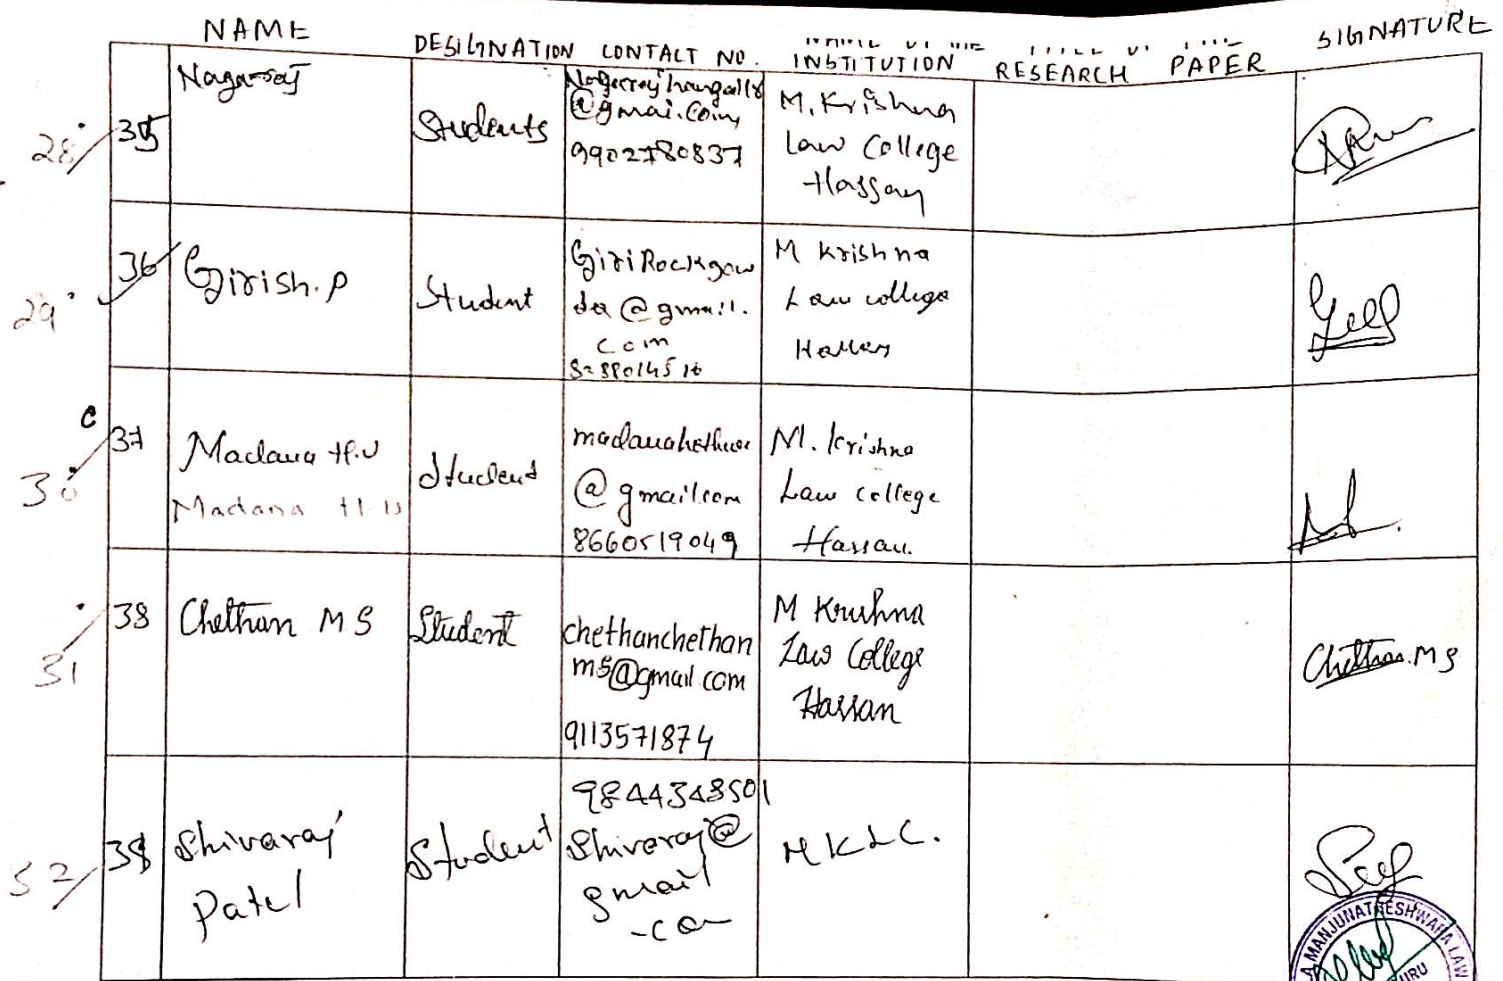 NAME
DESIGNATION CONTACT NO.
INSTITUTION
RESEARCH PAPER
SIGNATURE
28 35
Nagaraj
Students
@gmai.com
9902780837
M. Krishna
Law College
Hassan
29 36
Girish.P
Student
GiriRockgow
da@gmail.
com
M Krishna
Law college
Hassan
30 37
Madana H.U
Madana H U
Student
@gmail.com
8660519049
M. Krishna
Law college
Hassan.
31 38
Chethan M S
Student
chethanchethan
ms@gmail.com
9113571874
M Krishna
Law College
Hassan
Chethan.M S
32 39
Shivaraj
Patel
Student
9844348501
Shivaraj@
gmail
-com
M K L C.
MANJUNATHESHWARA LAW